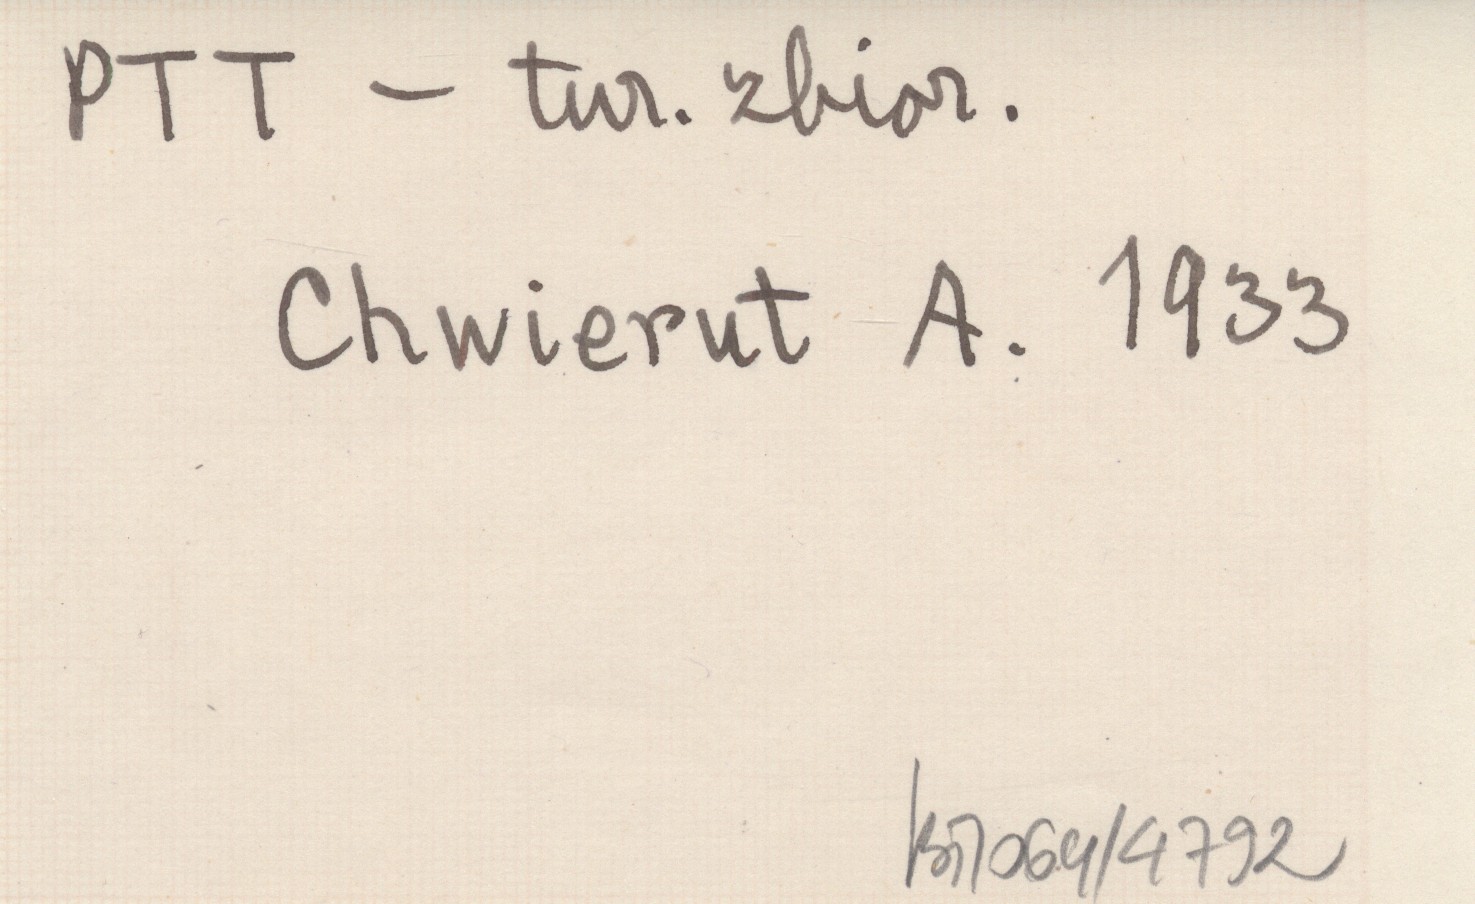 PTT – tur. zbior.
Chwierut A. 1933
/4792